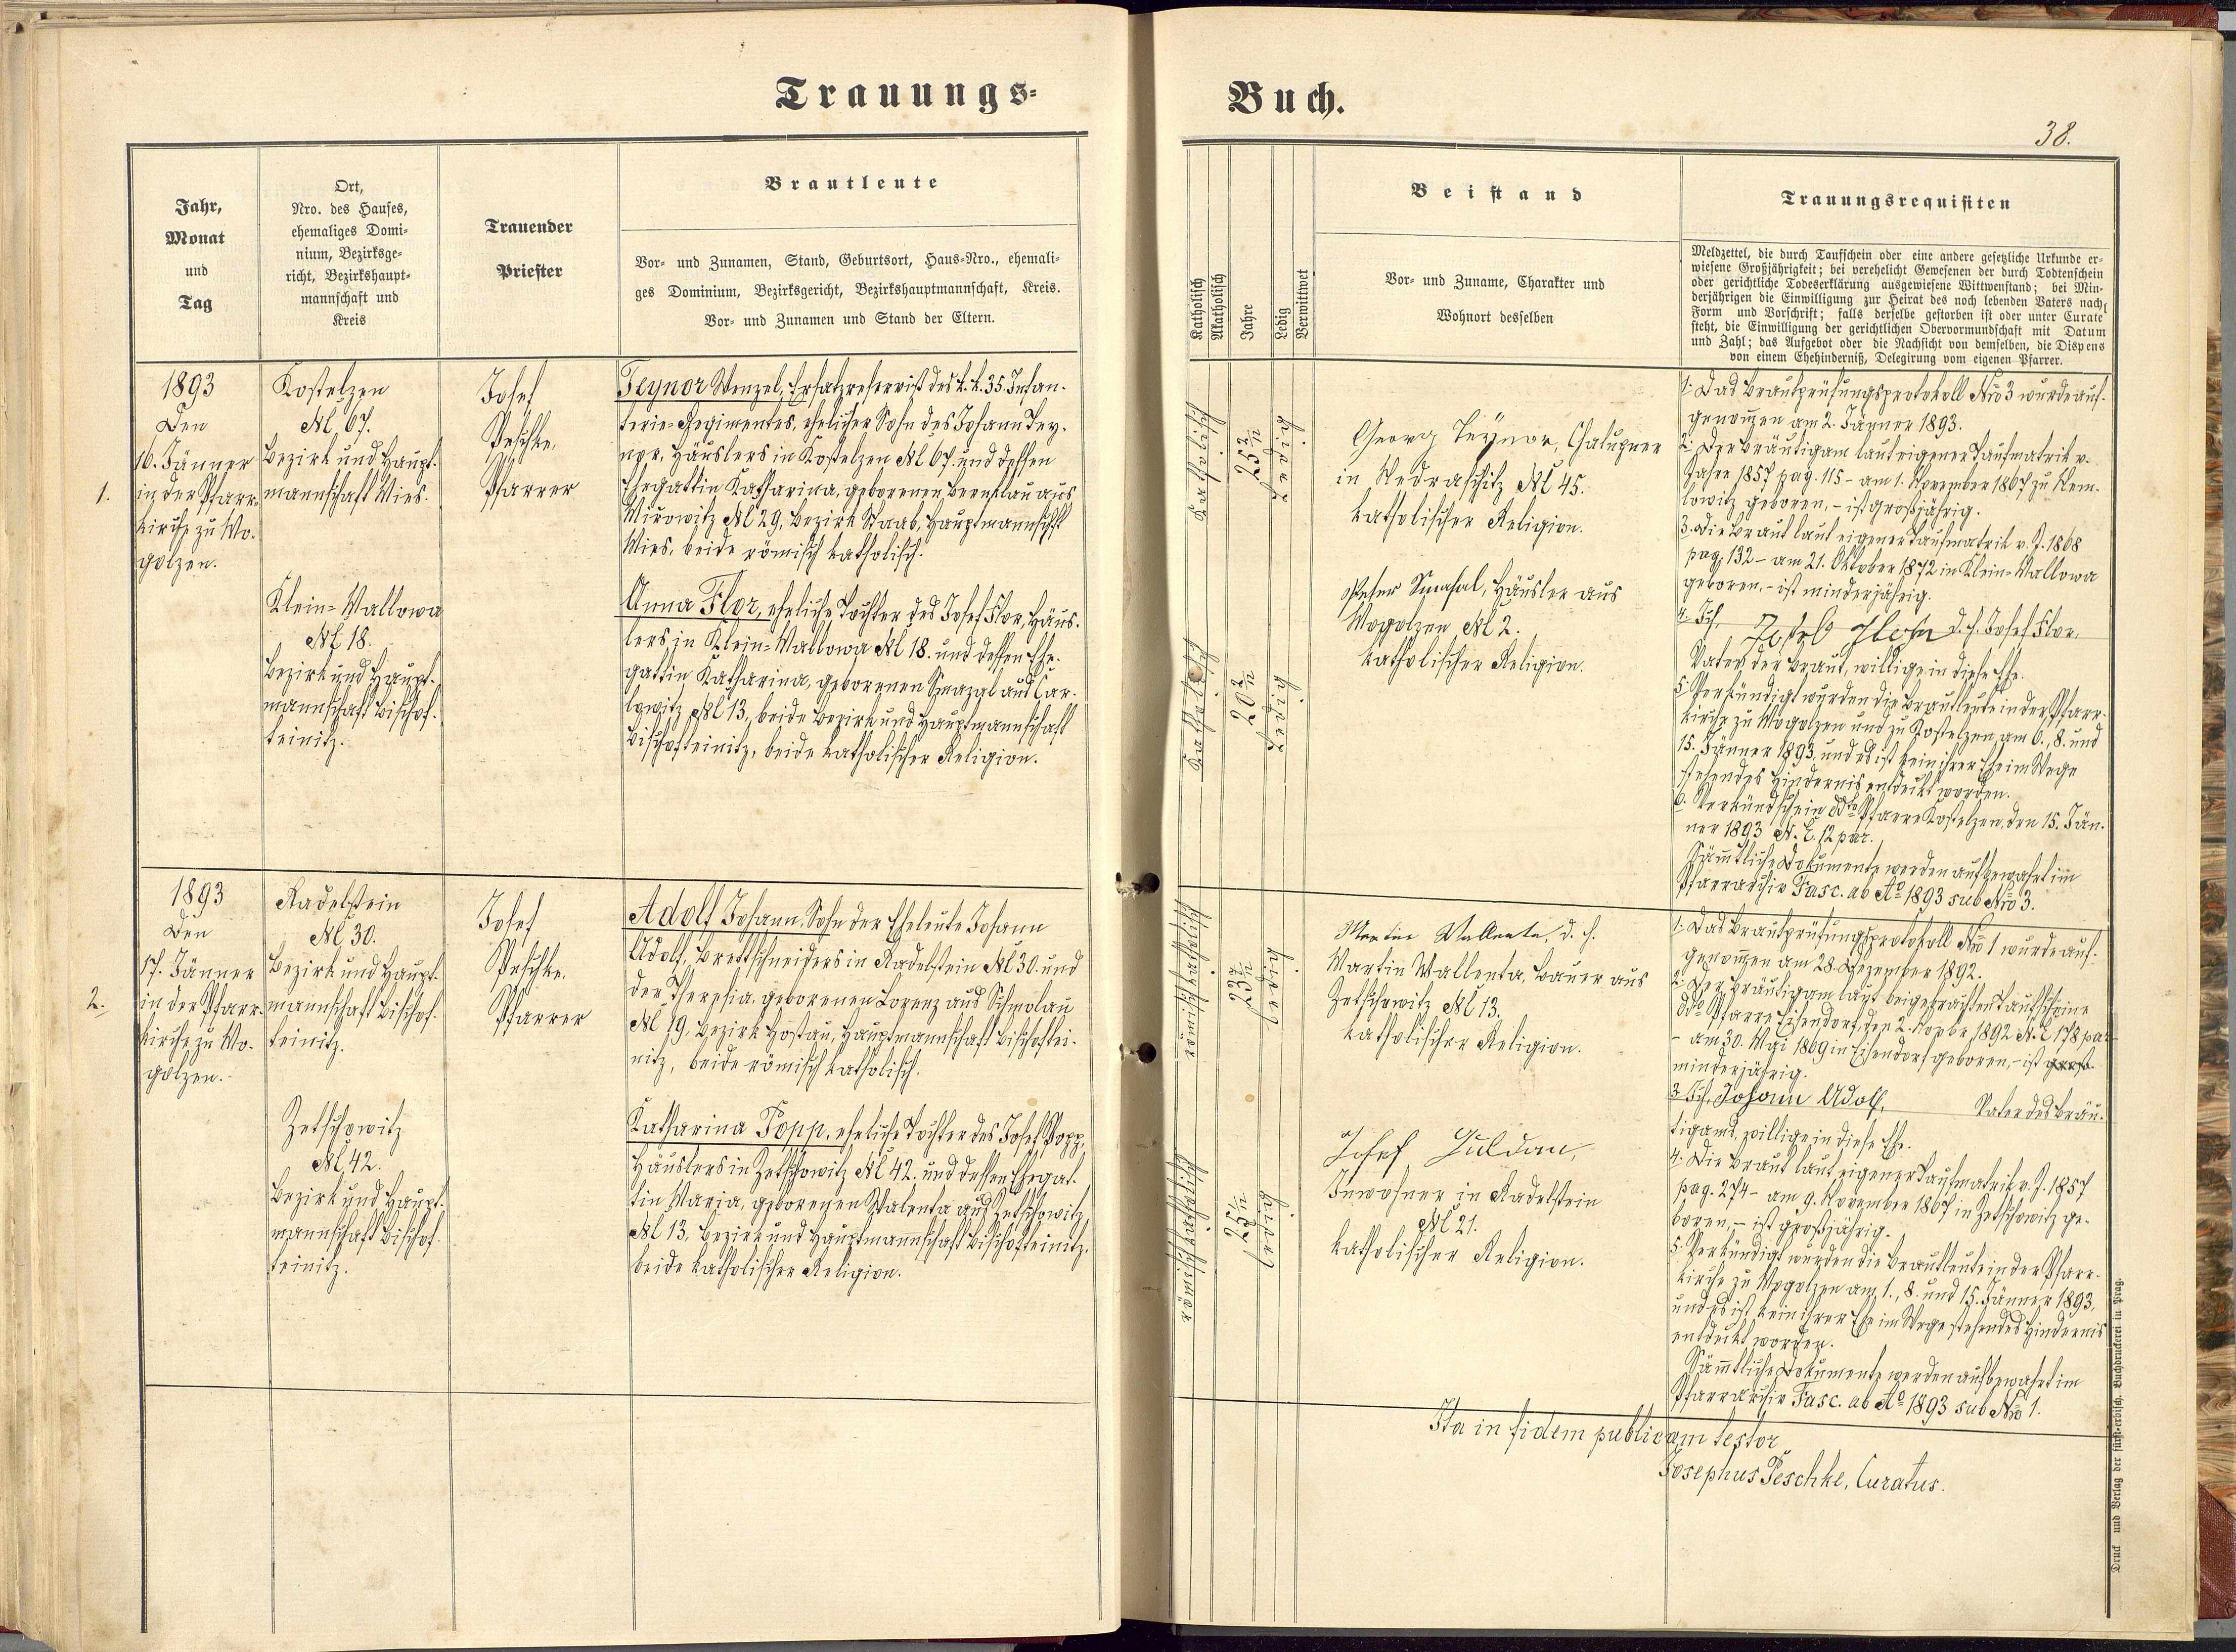 Trauungs-
Buch.
38.
Jahr,
Monat
und
Tag
Ort,
Nro. des Hauses,
ehemaliges Domi-
nium, Bezirksge-
richt, Bezirkshaupt-
mannschaft und
Kreis
Trauender
Priester
Brautleute
Vor- und Zunamen, Stand, Geburtsort, Haus-Nro., ehemali-
ges Dominium, Bezirksgericht, Bezirkshauptmannschaft, Kreis.
Vor- und Zunamen und Stand der Eltern.
Katholisch
Akatholisch
Jahre
Ledig
Verwittwet
Beistand
Vor- und Zuname, Charakter und
Wohnort desselben
Trauungsrequisiten
Meldzettel, die durch Taufschein oder eine andere gesetzliche Urkunde er-
wiesene Großjährigkeit; bei verehelicht Gewesenen der durch Todtenschein
oder gerichtliche Todeserklärung ausgewiesene Wittwenstand; bei Min-
derjährigen die Einwilligung zur Heirat des noch lebenden Vaters nach
Form und Vorschrift; falls derselbe gestorben ist oder unter Curate
steht, die Einwilligung der gerichtlichen Obervormundschaft mit Datum
und Zahl; das Aufgebot oder die Nachsicht von demselben, die Dispens
von einem Ehehinderniß, Delegirung vom eigenen Pfarrer.
1.
1893
Den
16. Jänner
in der Pfarr-
kirche zu Wo-
golzen.
Kostelzen
№ 67.
Bezirk und Haupt-
mannschaft Mies.
Klein-Mallowa
№ 18.
Bezirk und Haupt-
mannschaft Bischof-
teinitz.
Josef
Peschke,
Pfarrer
Teynor Wenzel, Ersatzreservist des k. k. 35. Infan-
terie-Regimentes, ehelicher Sohn des Johann Tey-
nor, Häuslers in Kostelzen № 67. und dessen
Ehegattin Katharina, geborenen Bernklau aus
Mirowitz № 29, Bezirk Staab, Hauptmannschft
Mies, beide römisch katholisch.
Anna Flor, eheliche Tochter des Josef Flor, Häus-
lers in Klein-Mallowa № 18. und dessen Ehe-
gattin Katharina, geborenen Smazal aus Car-
lowitz № 13, beide Bezirk und Hauptmannschaft
Bischofteinitz, beide katholischer Religion.
Katholisch
25 2/12
Ledig
Katholisch
20 2/12
Ledig
Georg Teynor, Chalupner
in Nedraschitz № 45.
katholischer Religion.
Peter Smasal, Häusler aus
Wogolzen № 2.
katholischer Religion.
1. Das Brautprüfungsprotokoll Nro 3 wurde auf-
genom̄en am 2. Jänner 1893.
2. Der Bräutigam laut eigener Taufmatrik v.
Jahre 1857 pag. 115 - am 1. November 1867 zu
geboren, - ist großjährig.
3. Die Braut laut eigener Taufmatrik v. J. 1868
pag. 132 - am 21. Oktober 1872 in Klein-Mallowa
geboren, - ist minderjährig.
4. Ich, d. h. Josef Flor,
Vater der Braut, willige in diese Ehe.
5. Verkündigt wurden die Brautleute in der Pfarr-
kirche zu Wogolzen und zu Kostelzen am 6., 8. und
15. Jänner 1893, und es ist kein ihrer Ehe im Wege
stehendes Hindernis entdeckt worden.
6. Verkündschein ddto Pfarre Kostelzen, den 15. Jän-
ner 1893 N. E. 12 par.
Säm̄tliche Dokumente werden aufbewahrt im
Pfarrarchiv Fasc. ab Ao 1893 sub Nro 3.
2.
1893
Den
17. Jänner
in der Pfarr-
kirche zu Wo-
golzen.
Radelstein
№ 30.
Bezirk und Haupt-
mannschaft Bischof-
teinitz.
Zetschowitz
№ 42.
Bezirk und Haupt-
mannschaft Bischof-
teinitz.
Josef
Peschke,
Pfarrer
Adolf Johann, Sohn der Eheleute Johann
Adolf, Brettschneiders in Radelstein № 30. und
der Theresia, geborenen Lorenz aus Schmolau
№ 19, Bezirk Hostau, Hauptmannschaft Bischoftei-
nitz, beide römisch katholisch.
Katharina Popp, eheliche Tochter des Josef Popp,
Häuslers in Zetschowitz № 42. und dessen Ehegat-
tin Maria, geborenen Walenta aus Zetschowitz
№ 13, Bezirk und Hauptmannschaft Bischofteinitz,
beide katholischer Religion.
römisch katholisch
23 7/12
ledig
römisch katholisch
25 2/12
ledig
Martin Wallenta, d. h.
Martin Wallenta, Bauer aus
Zetschowitz № 13.
katholischer Religion.
Josef Zuldan,
Inwohner in Radelstein
№ 21.
katholischer Religion.
1. Das Brautprüfungsprotokoll Nro 1 wurde auf-
genom̄en am 28. Dezember 1892.
2. Der Bräutigam laut beigebrachten Taufscheine
ddto Pfarre Eisendorf, den 2. Novbr. 1892 N. E. 178 par
- am 30. Mai 1869 in Eisendorf geboren, - ist groß-
minderjährig.
3. Ich, Johann Adolf, Vater des Bräu-
tigams, willige in diese Ehe.
4. Die Braut laut eigener Taufmatrik v. J. 1857
pag. 274 - am 9. November 1867 in Zetschowitz ge-
boren, - ist großjährig.
5. Verkündigt wurden die Brautleute in der Pfarr-
kirche zu Wogolzen am 1., 8. und 15. Jänner 1893,
und es ist kein ihrer Ehe im Wege stehendes Hindernis
entdeckt worden.
Säm̄tliche Dokumente werden aufbewahrt im
Pfarrarchiv Fasc. ab Ao 1893 sub Nro 1.
Ita in fidem publicam testor
Josephus Peschke, Curatus.
Druck und Verlag der fürst-erbisch. Buchdruckerei in Prag.